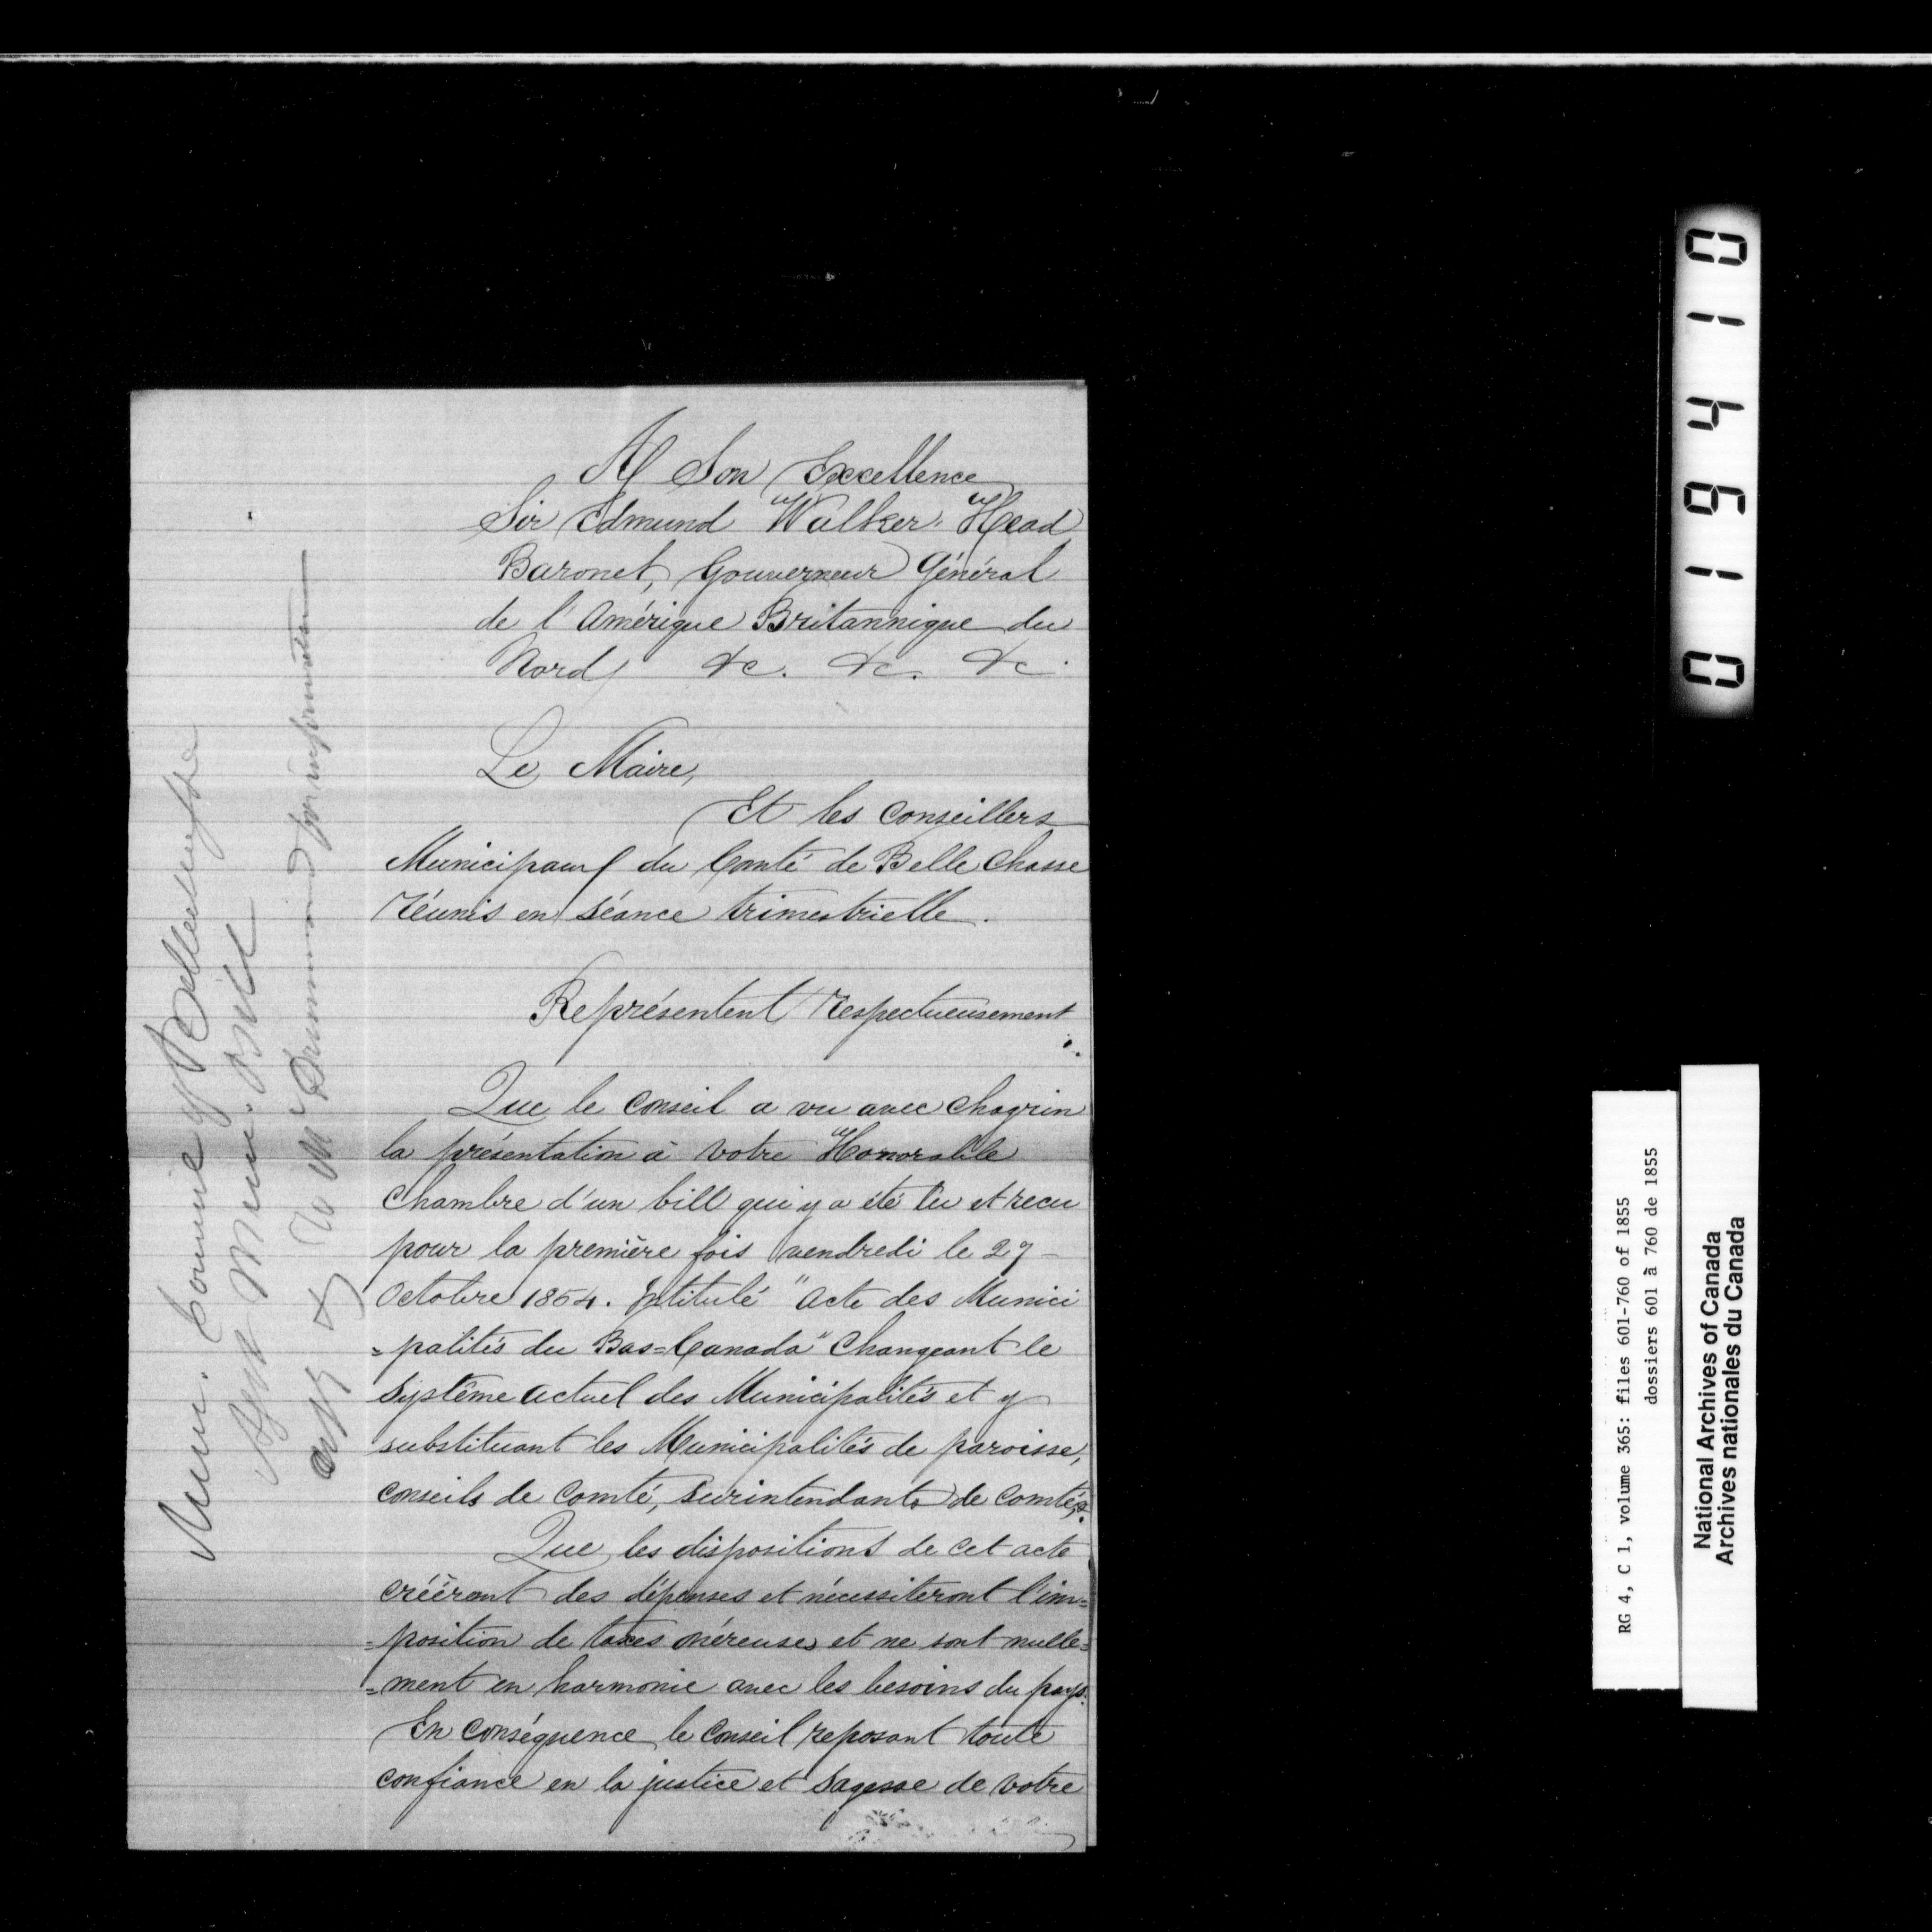 A Son Excellence
Sir Edmund Walker Head
Baronet, Gouverneur Général
de l'Amérique Britannique du
Nord &c. &c. &c.
Le Maire,
Et les Conseillers
Municipaux du Comté de Belle Chasse
Réunis en séance trimestrielle.
Représentent Respectueusement
Que le Conseil a vu avec Chagrin
la présentation à Votre Honorable
Chambre d'un bill qui y a été lu et recu
pour la première fois vendredi le 27
Octobre 1854. Intitulé "Acte des Munici
=palités du Bas=Canada" Changeant le
Système actuel des Municipalités et y
substituant les Municipalités de paroisse,
Conseils de Comté, Surintendants de Comtés.
Que les dispositions de Cet acte
créèront des dépenses et nécessiteront l'im=
=position de taxes onéreuses et ne sont nulle=
=ment en harmonie avec les besoins du pays.
En Conséquence le Conseil reposant toute
confiance en la justice et Sagesse de Votre
Mun. Counc. of Bellechasse
Agst Muni. Bill
To Mr Drummond for information
019410
RG 4, C 1, volume 365: files 601-760 of 1855
dossiers 601 à 760 de 1855
National Archives of Canada
Archives nationales du Canada